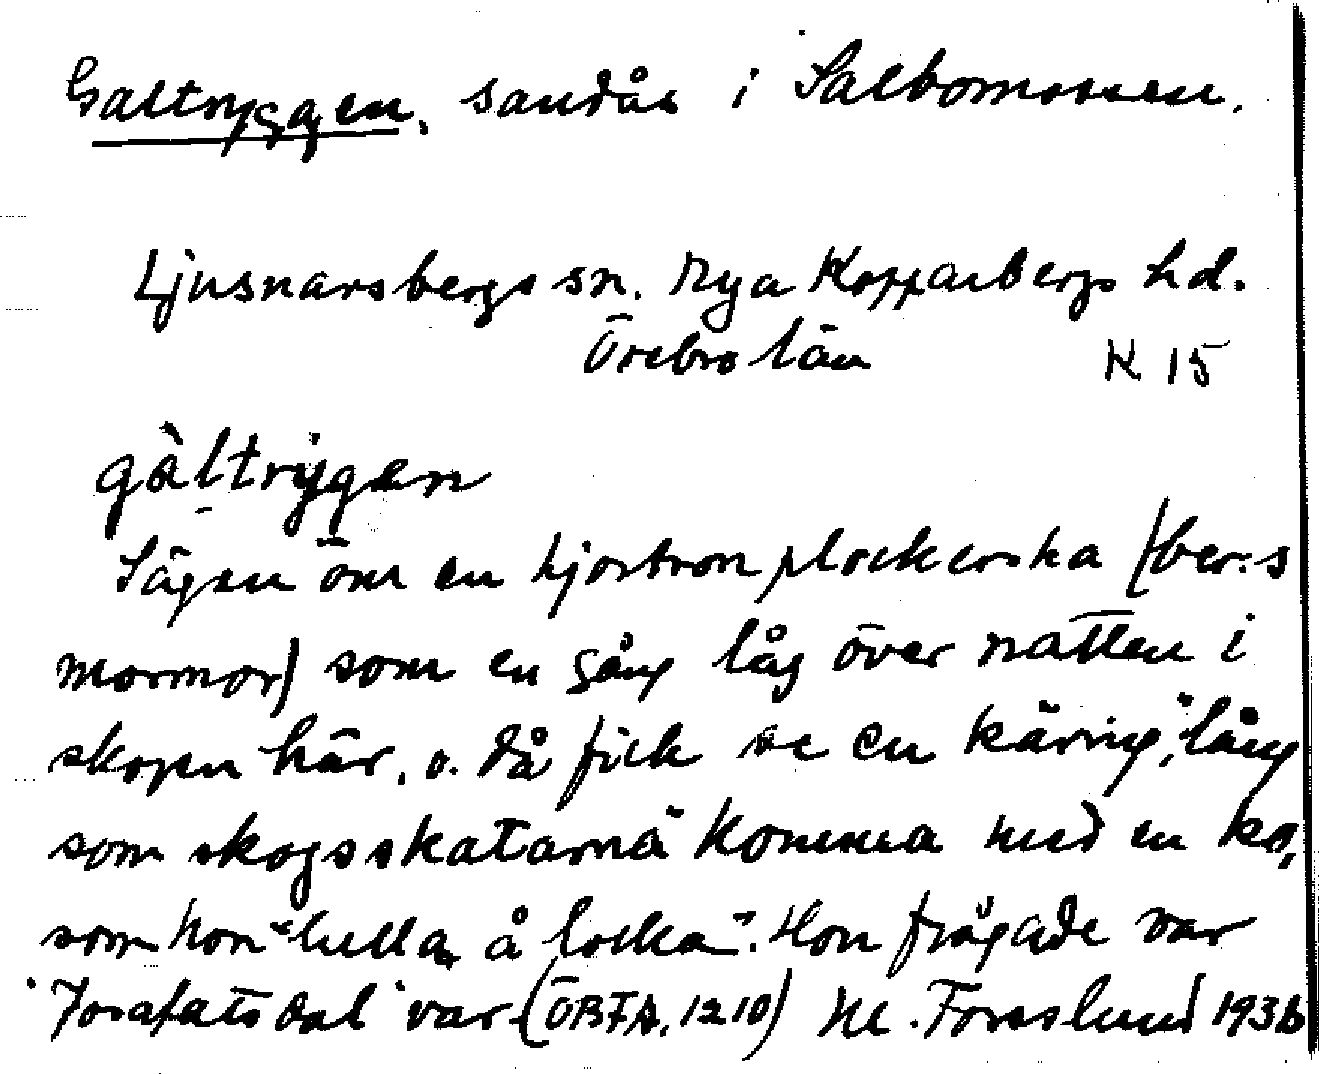 Galtryggen, sandås i Salbomossen.
Ljusnarsbergs sn. Nya Kopparbergs hd.
Örebro län K 15
gàltrygen
Sägen om en hjortronplockerska (ber:s
mormor) som en gång låg över natten i
skogen här, o. då fick se en käring, "lång
som skogsskatarna" komma med en ko,
som hon "lulla å locka". Hon frågade var
"Josafats dal" var. (ÖBFA, 1210) Forsslund 1936